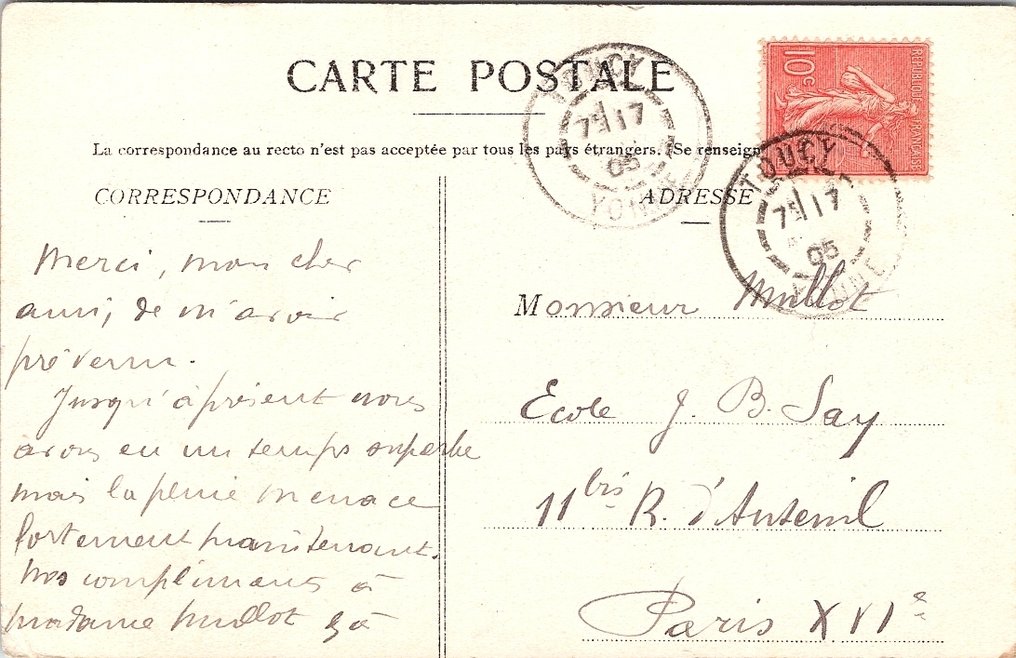 CARTE POSTALE
La correspondance au recto n'est pas acceptée par tous les pays étrangers. (Se renseign
CORRESPONDANCE
Merci, mon cher
ami, de m'avoir
prévenu.
Jusqu'à présent nous
avons eu un temps superbe
mais la pluie menace
fortement maintenant.
Nos compliments à
madame Mullot &à
ADRESSE
Monsieur Mullot
Ecole J. B. Say
11 bis R. d'Auteuil
Paris XVIe
10c
REPUBLIQUE FRANÇAISE
TOUCY
17
05
YONNE
TOUCY
17
05
YONNE